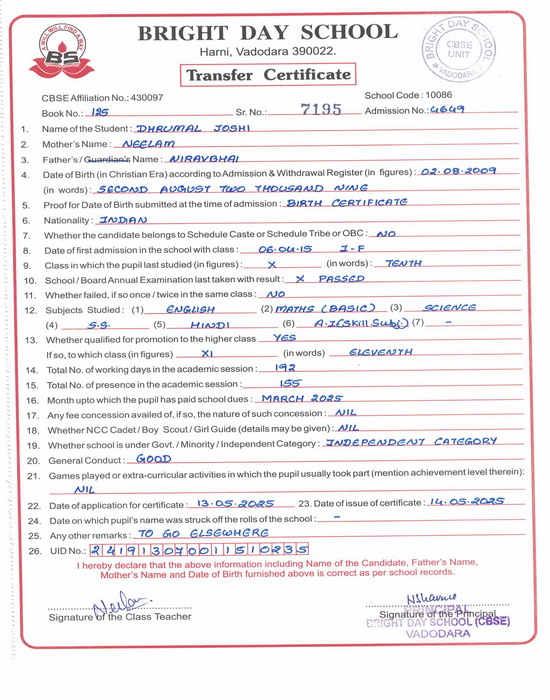 A WILL WILL FIND A WAY
BS
BRIGHT DAY SCHOOL
Harni, Vadodara 390022.
BRIGHT DAY SCHOOL
CBSE
UNIT
VADODARA
Transfer Certificate
CBSE Affiliation No.: 430097 School Code : 10086
Book No.: 125 Sr. No.: 7195 Admission No.: 4649
1. Name of the Student : DHRUMAL JOSHI
2. Mother's Name : NEELAM
3. Father's / Guardian's Name : NIRAVBHAI
4. Date of Birth (in Christian Era) according to Admission & Withdrawal Register (in figures) : 02.08.2009
(in words) : SECOND AUGUST TWO THOUSAND NINE
5. Proof for Date of Birth submitted at the time of admission : BIRTH CERTIFICATE
6. Nationality : INDIAN
7. Whether the candidate belongs to Schedule Caste or Schedule Tribe or OBC : NO
8. Date of first admission in the school with class : 06.04.15 I-F
9. Class in which the pupil last studied (in figures) : X (in words) : TENTH
10. School / Board Annual Examination last taken with result : X PASSED
11. Whether failed, if so once / twice in the same class : NO
12. Subjects Studied : (1) ENGLISH (2) MATHS (BASIC) (3) SCIENCE
(4) S.S. (5) HINDI (6) A.I (Skill Subj.) (7) -
13. Whether qualified for promotion to the higher class YES
If so, to which class (in figures) XI (in words) ELEVENTH
14. Total No. of working days in the academic session : 192
15. Total No. of presence in the academic session : 155
16. Month upto which the pupil has paid school dues : MARCH 2025
17. Any fee concession availed of, if so, the nature of such concession : NIL
18. Whether NCC Cadet / Boy Scout / Girl Guide (details may be given) : NIL
19. Whether school is under Govt. / Minority / Independent Category : INDEPENDENT CATEGORY
20. General Conduct : GOOD
21. Games played or extra-curricular activities in which the pupil usually took part (mention achievement level therein) :
NIL
22. Date of application for certificate : 13.05.2025 23. Date of issue of certificate : 14.05.2025
24. Date on which pupil's name was struck off the rolls of the school : -
25. Any other remarks : TO GO ELSEWHERE
26. UID No.: 241913070011510235
I hereby declare that the above information including Name of the Candidate, Father's Name,
Mother's Name and Date of Birth furnished above is correct as per school records.
Signature of the Class Teacher
Signature of the Principal
PRINCIPAL
BRIGHT DAY SCHOOL (CBSE)
VADODARA